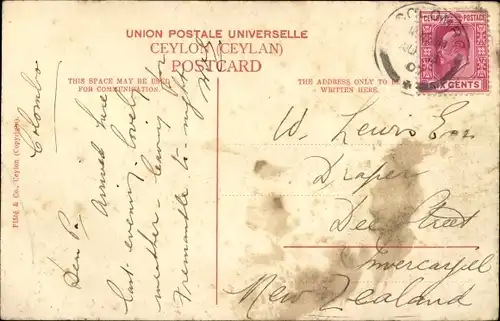 UNION POSTALE UNIVERSELLE
CEYLON (CEYLAN)
POSTCARD
THIS SPACE MAY BE USED
FOR COMMUNICATION.
THE ADDRESS ONLY TO BE
WRITTEN HERE.
CEYLON POSTAGE
SIX CENTS
Plâté & Co., Ceylon (Copyright).
Colombo
Dear P.
Arrived here
last evening, lovely
weather - leaving for
Fremantle to-night
W. Lewis Esq
Draper
Dee Street
Invercargill
New Zealand